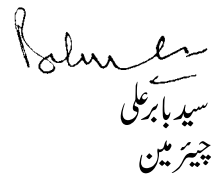 سید بابر علی
چیئرمین